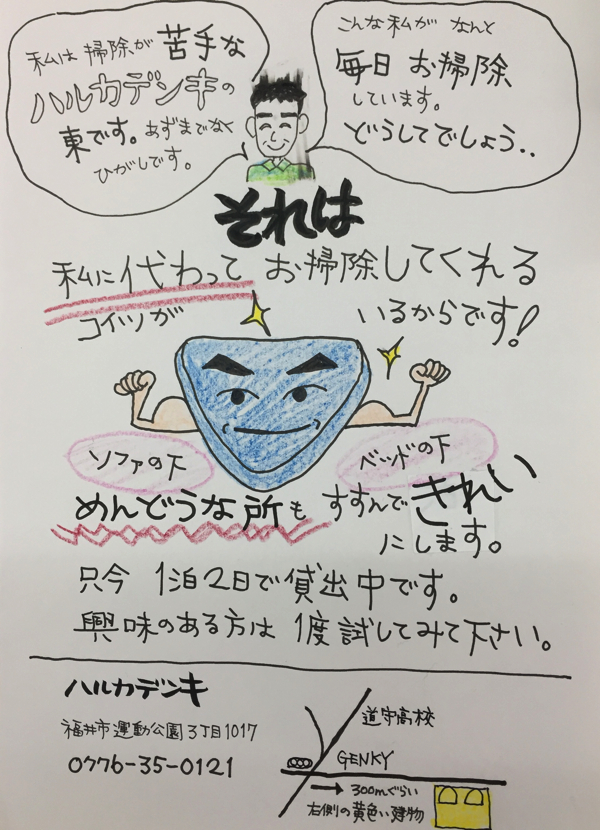 私は掃除が苦手な
ハルカデンキの
東です。あずまでなく
ひがしです。
こんな私が なんと
毎日 お掃除
しています。
どうしてでしょう..
それは
私に代わって お掃除してくれる
コイツが いるからです!
ソファの下
ベッドの下
めんどうな所も すすんで きれい
にします。
只今 1泊2日で貸出中です。
興味のある方は 1度試してみて下さい。
ハルカデンキ
福井市運動公園3丁目1017
0776-35-0121
道守高校
GENKY
→ 300mぐらい
右側の黄色い建物